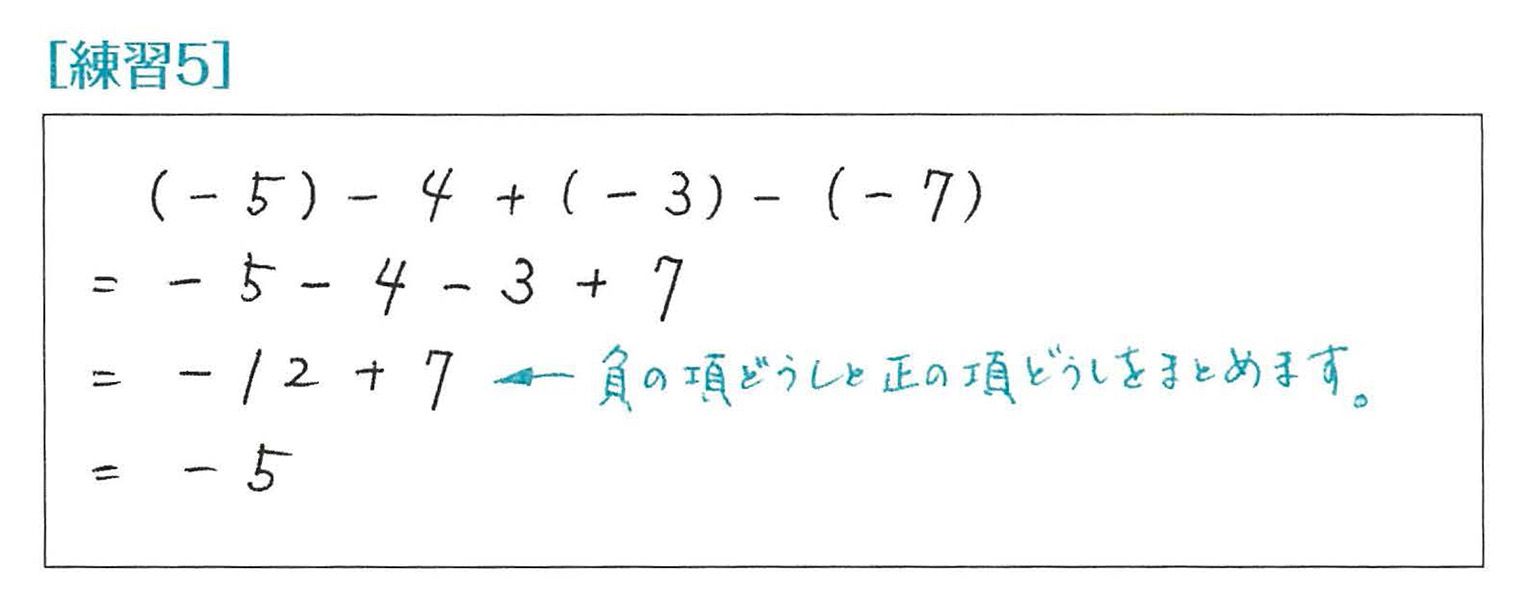 [練習5]
(-5)-4+(-3)-(-7)
=-5-4-3+7
=-12+7 ← 負の項どうしと正の項どうしをまとめます。
=-5